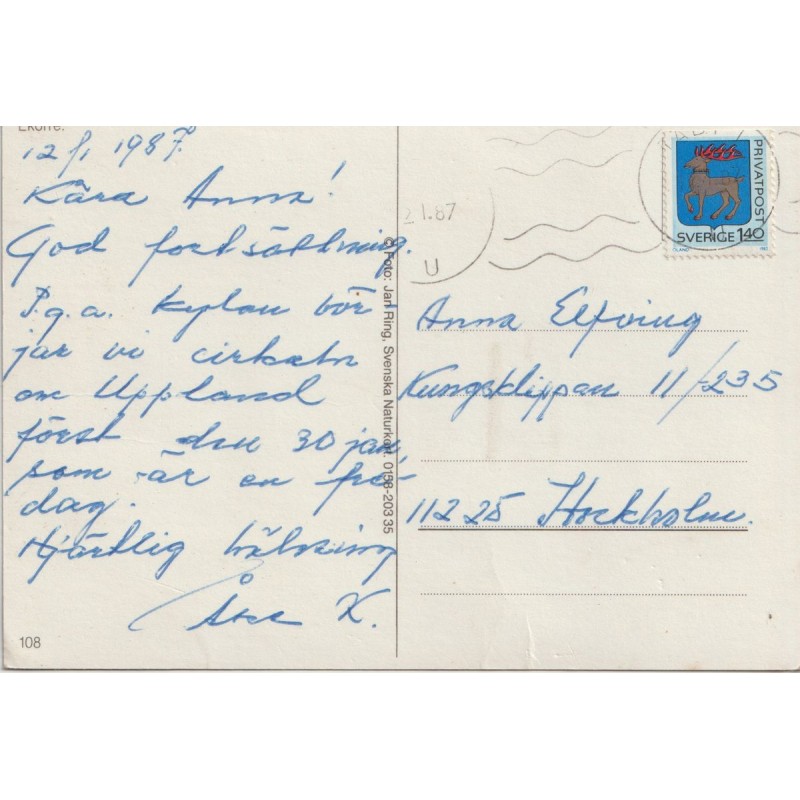 Ekorre.
12/1 1987.
Kära Anna!
God fortsättning.
P.g.a. kylan bör-
jar vi cirkeln
om Uppland
först den 30 jan,
som är en fre-
dag.
Hjärtlig hälsning
Åke K.
108
© Foto: Jan Ring, Svenska Naturkort. 0158-20335
2 1.87
U
PRIVATPOST
SVERIGE 140
ÖLAND
Anna Elfving
Kungsklippan 11/235
112 25 Stockholm.